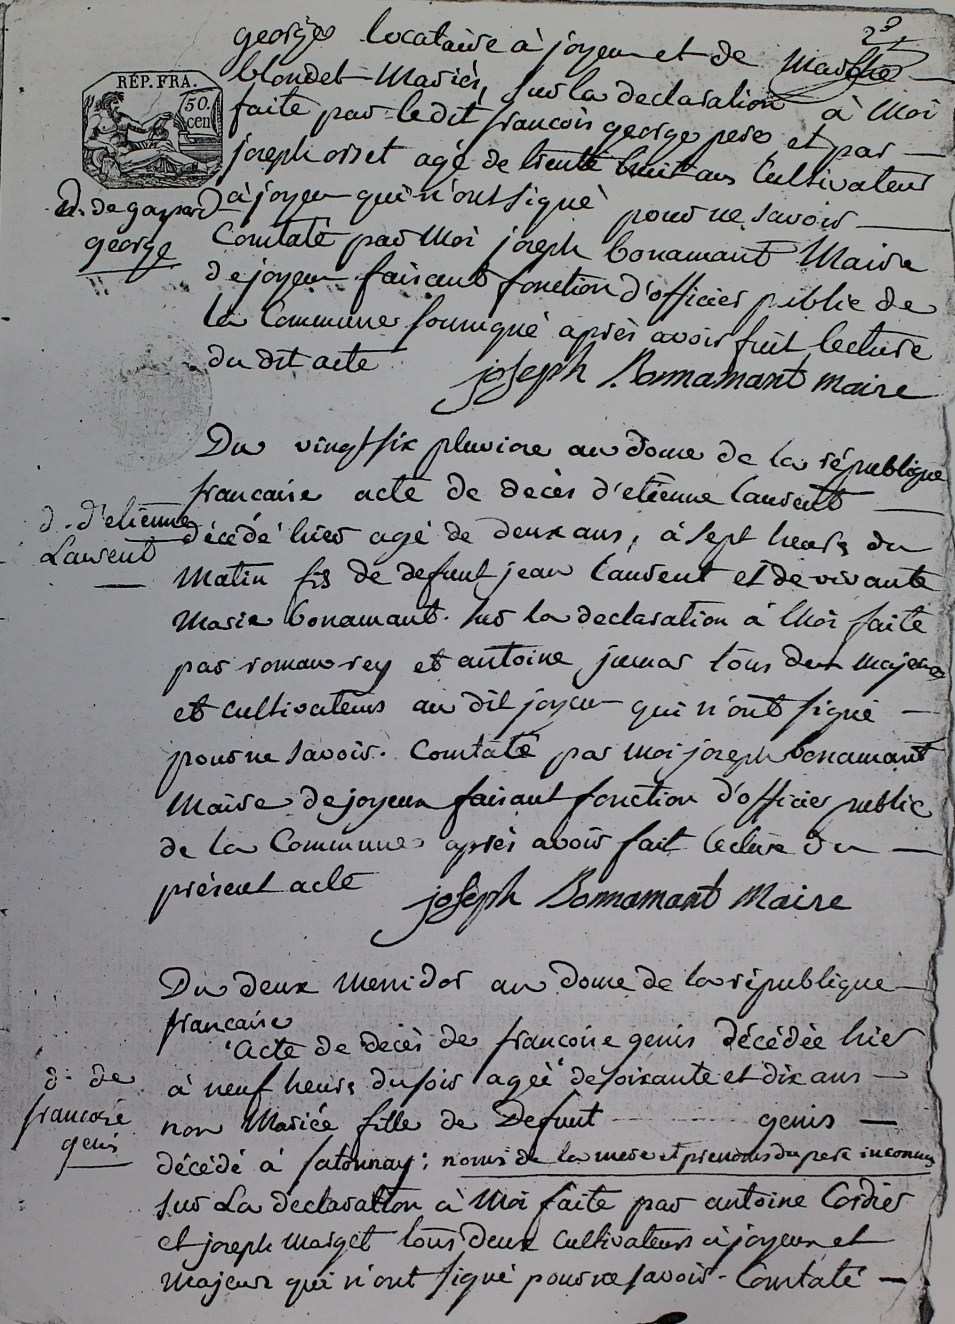 2e
george locataire à joyeux et de Marthe
blondet Mariés, sur la declaration à Moi
faite par le dit francois george pere, et par
joseph orset agé de trente huit ans Cultivateur
à joyeux qui n'ont signé pour ne savoir
Constaté par Moi joseph bonamant Maire
de joyeux faisant fonction d'officier public de
la Commune soussigné après avoir fait lecture
du dit acte
joseph Bonnamant maire
RÉP. FRA.
50.
cen
d. de gaspard
george
Du vingt six pluviose an douze de la république
francaise acte de decès d'etienne laurent
décédé hier agé de deux ans, à sept heurs du
Matin fis de defunt jean laurent et de vivante
Marie bonamant. sur la declaration à Moi faite
par roman rey et antoine jumar tous deux Majeurs
et cultivateurs au dit joyeux qui n'ont signé
pour ne savoir. Constaté par Moi joseph bonamant
Maire de joyeux faisant fonction d'officier public
de la Commune après avoir fait lecture du
présent acte
joseph Bonnamant Maire
d. d'etienne
Laurent
Du deux Messidor an douze de la république
francaise
Acte de decès de francoise genis décédée hier
à neuf heurs du soir agéé de soixante et dix ans
non Mariée fille de Defunt genis
décédé à satonnay; noms de la mere et prenoms du pere inconnus
sur La declaration à Moi faite par antoine Cordier
et joseph Marget tous deux Cultivateurs à joyeux et
Majeur qui n'ont signé pour ne savoir. Constaté
d. de
francoise
genis